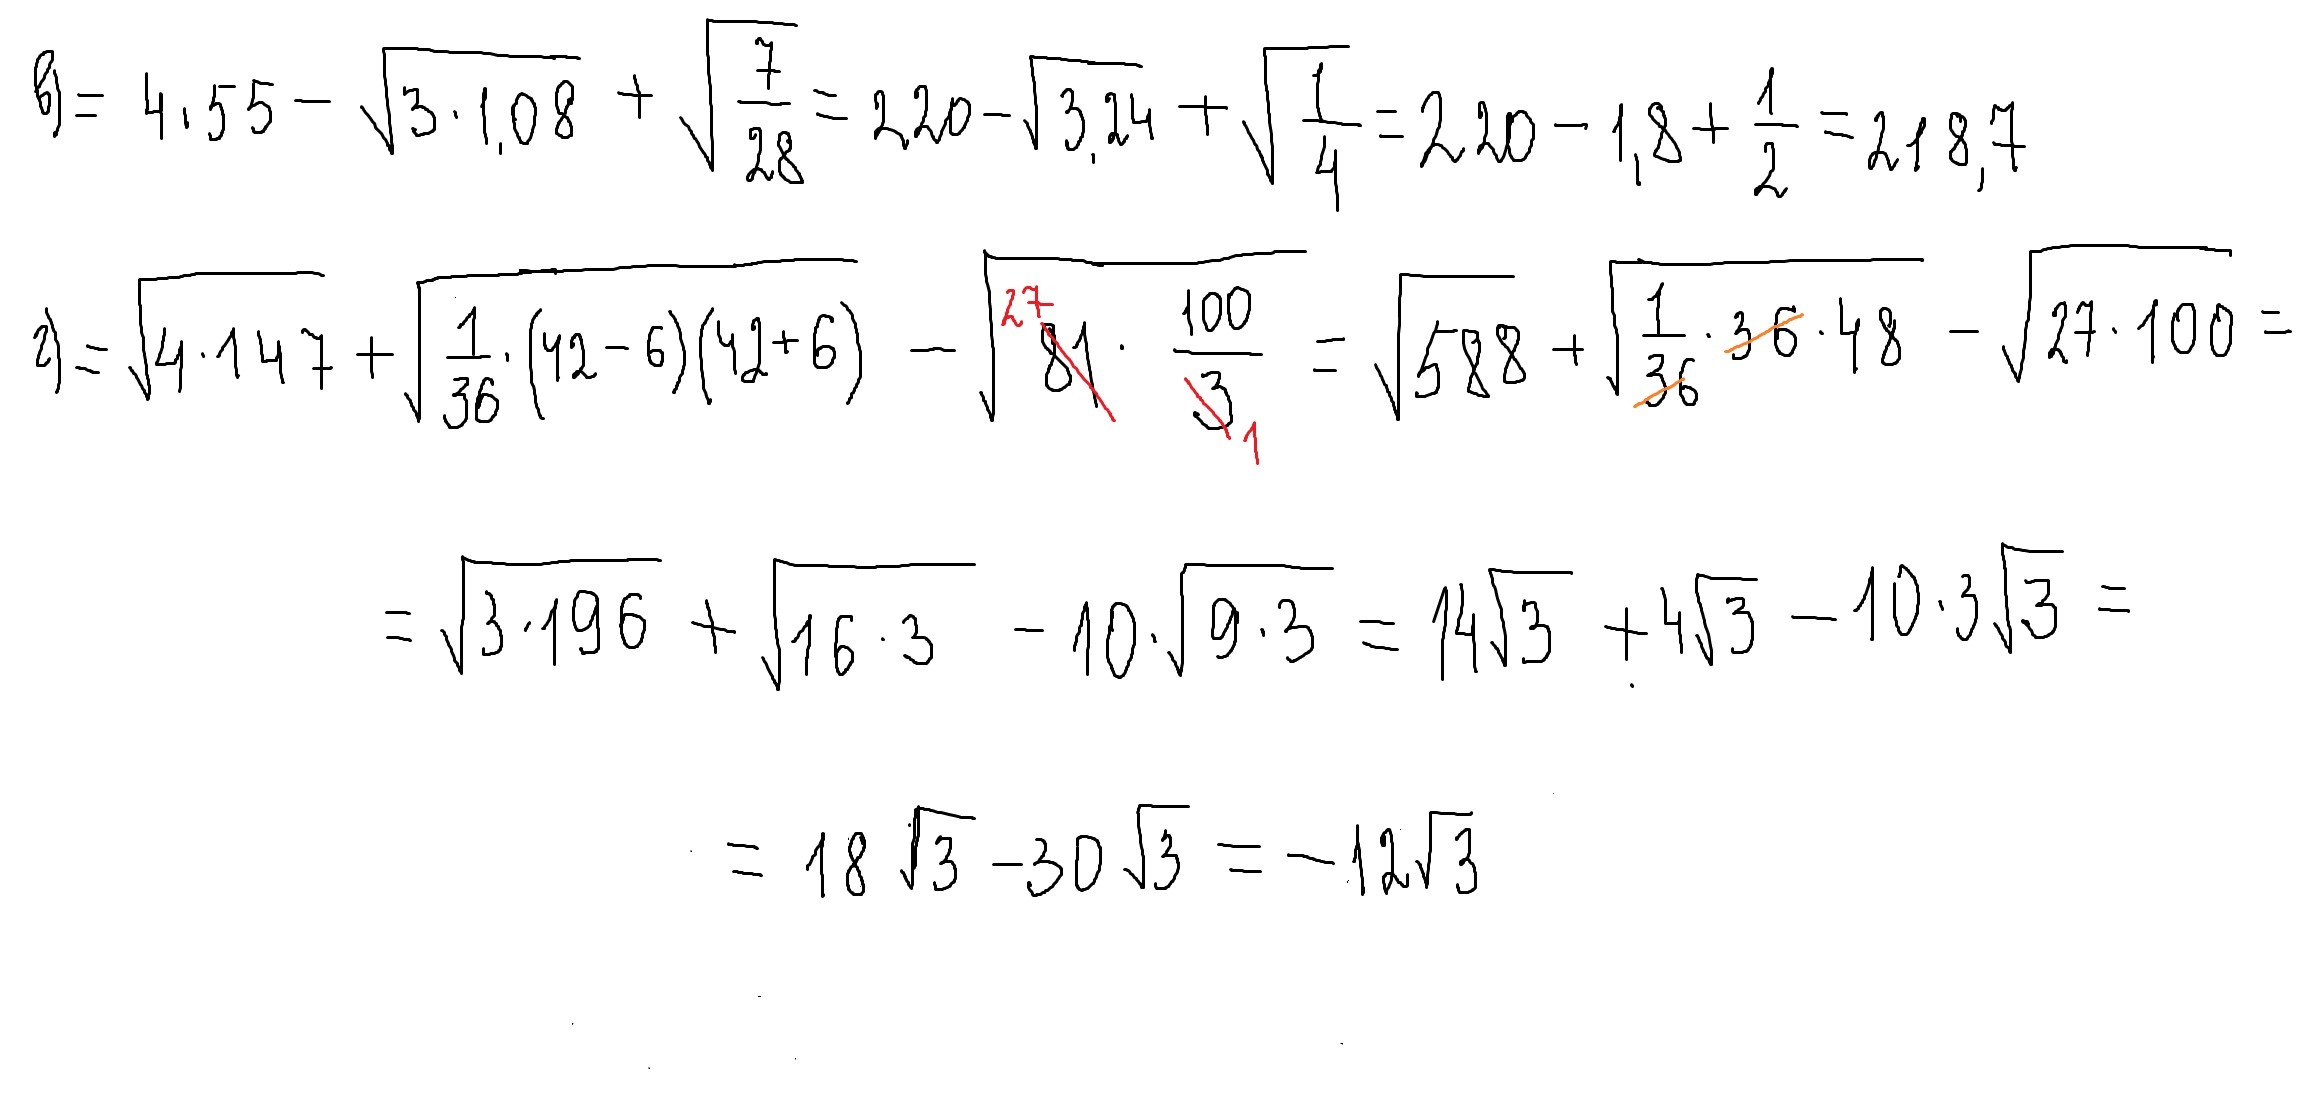 в) = 4.55 - √(3·1,08) + √(7/28) = 220 - √(3,24) + √(1/4) = 220 - 1,8 + 1/2 = 218,7
г) = √(4·147) + √(1/36·(42-6)(42+6)) - √(81·100/3) = √588 + √(1/36·36·48) - √(27·100) =
27 1
= √(3·196) + √(16·3) - 10·√(9·3) = 14√3 + 4√3 - 10·3√3 =
= 18√3 - 30√3 = -12√3